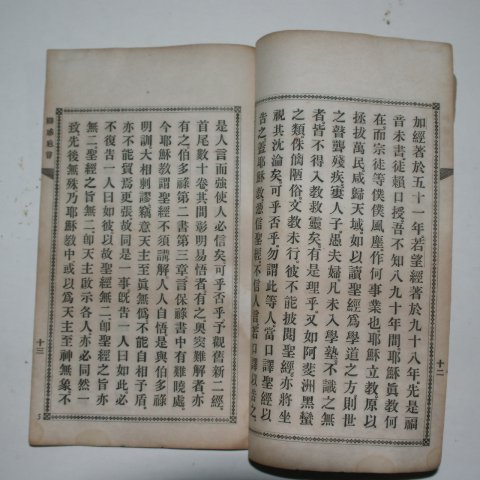 加經著於五十一年若望經著於九十八年先是福
音未書徒賴口授吾不知八九十年間耶穌眞教何
在而宗徒等僕僕風塵作何事業也耶穌立教原以
拯拔萬民咸歸天域如以讀聖經爲學道之方則世
之瞽聾殘疾窶人子愚夫婦凡未入學塾不識之無
者皆不得入教救靈矣有是理乎又如阿斐洲黑蠻
之類侏儷陋俗文教未行彼不能披閱聖經亦將坐
視其沈淪矣可乎否乎勿謂此等人當口譯聖經以
告之蓋耶穌教憑信聖經不信人言若口譯以告之
十二
是人言而強使人必信矣可乎否乎予觀舊新二經
首尾數十卷其間彰明易悟者有之奧窔難解者亦
有之伯多祿第二書第三章言保祿書中有難曉處
今耶穌教謂聖經不須講解人人自悟是與伯多祿
明訓大相刺謬竊意天主至眞無僞不能自相矛盾
亦不能質爲更張故同是一事旣告一人曰如此必
不復告一人曰如彼以故聖經無二聖經之旨亦
無二聖經之旨無二卽天主啟示各人亦必同然一
致先後無殊乃耶穌教中或以爲天主至神無象不
十三